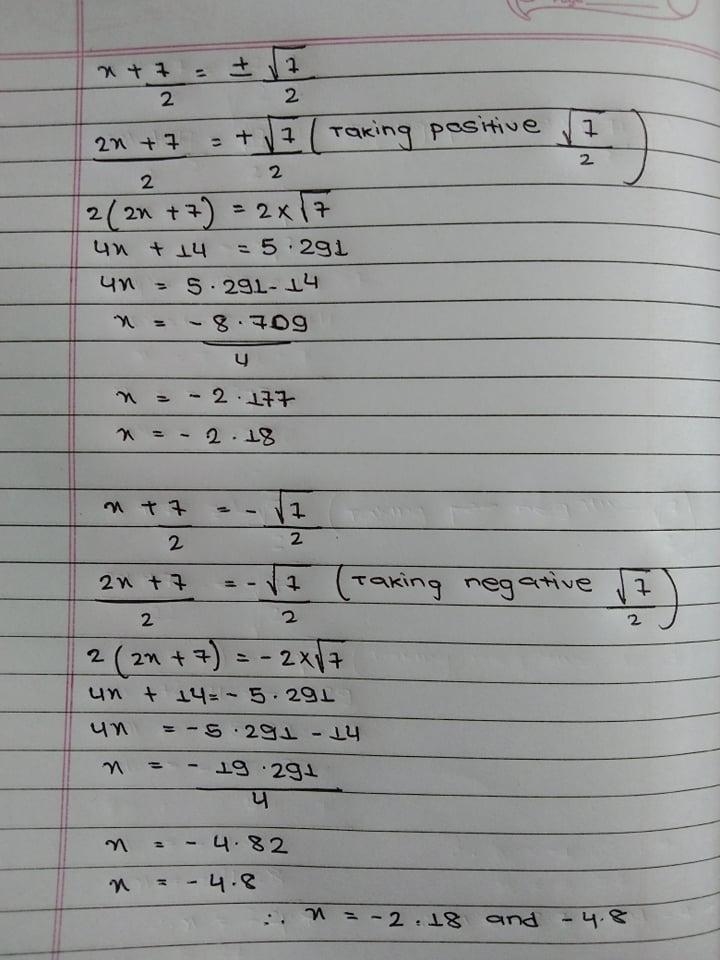 x + 7/2 = ± √7/2
2x + 7/2 = + √7/2 ( Taking positive √7/2 )
2(2x + 7) = 2 × √7
4x + 14 = 5.291
4x = 5.291 - 14
x = - 8.709/4
x = - 2.177
x = - 2.18
x + 7/2 = - √7/2
2x + 7/2 = - √7/2 ( Taking negative √7/2 )
2(2x + 7) = - 2 × √7
4x + 14 = - 5.291
4x = - 5.291 - 14
x = - 19.291/4
x = - 4.82
x = - 4.8
∴ x = - 2.18 and - 4.8